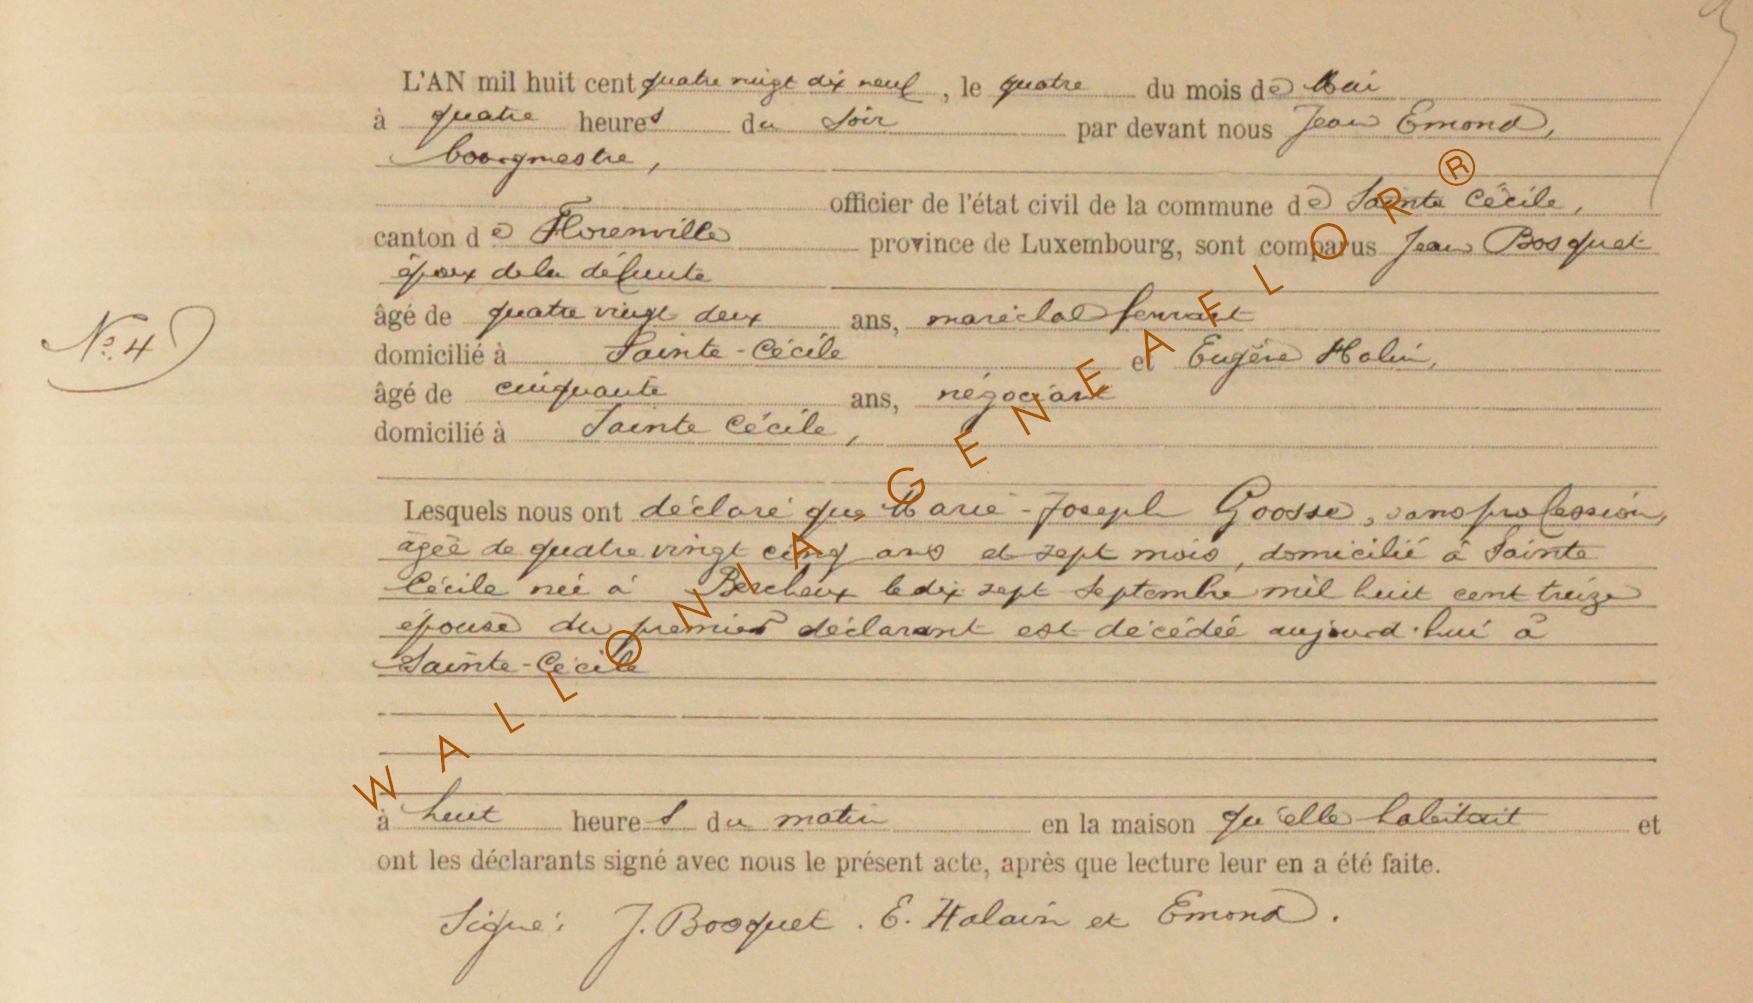 L'AN mil huit cent quatre vingt dix neuf, le quatre du mois de Mai
à quatre heures du soir par devant nous Jean Emond,
bourgmestre,
officier de l'état civil de la commune de Sainte Cécile,
canton de Florenville province de Luxembourg, sont comparus Jean Bosquet
époux de la défunte
âgé de quatre vingt deux ans, maréchal ferrant
domicilié à Sainte-Cécile et Eugène Halin,
N° 4
âgé de cinquante ans, négociant
domicilié à Sainte Cécile,
Lesquels nous ont déclaré que Marie-Joseph Goosse, sans profession,
âgée de quatre vingt cinq ans et sept mois, domicilié à Sainte
Cécile née à Bercheux le dix sept Septembre mil huit cent treize
épouse du premier déclarant est décédée aujourd'hui à
Sainte-Cécile
à huit heures du matin en la maison qu'elle habitait et
ont les déclarants signé avec nous le présent acte, après que lecture leur en a été faite.
Signé: J. Bosquet. E. Halain et Emond.
WALLONIA GENEAFLOR®